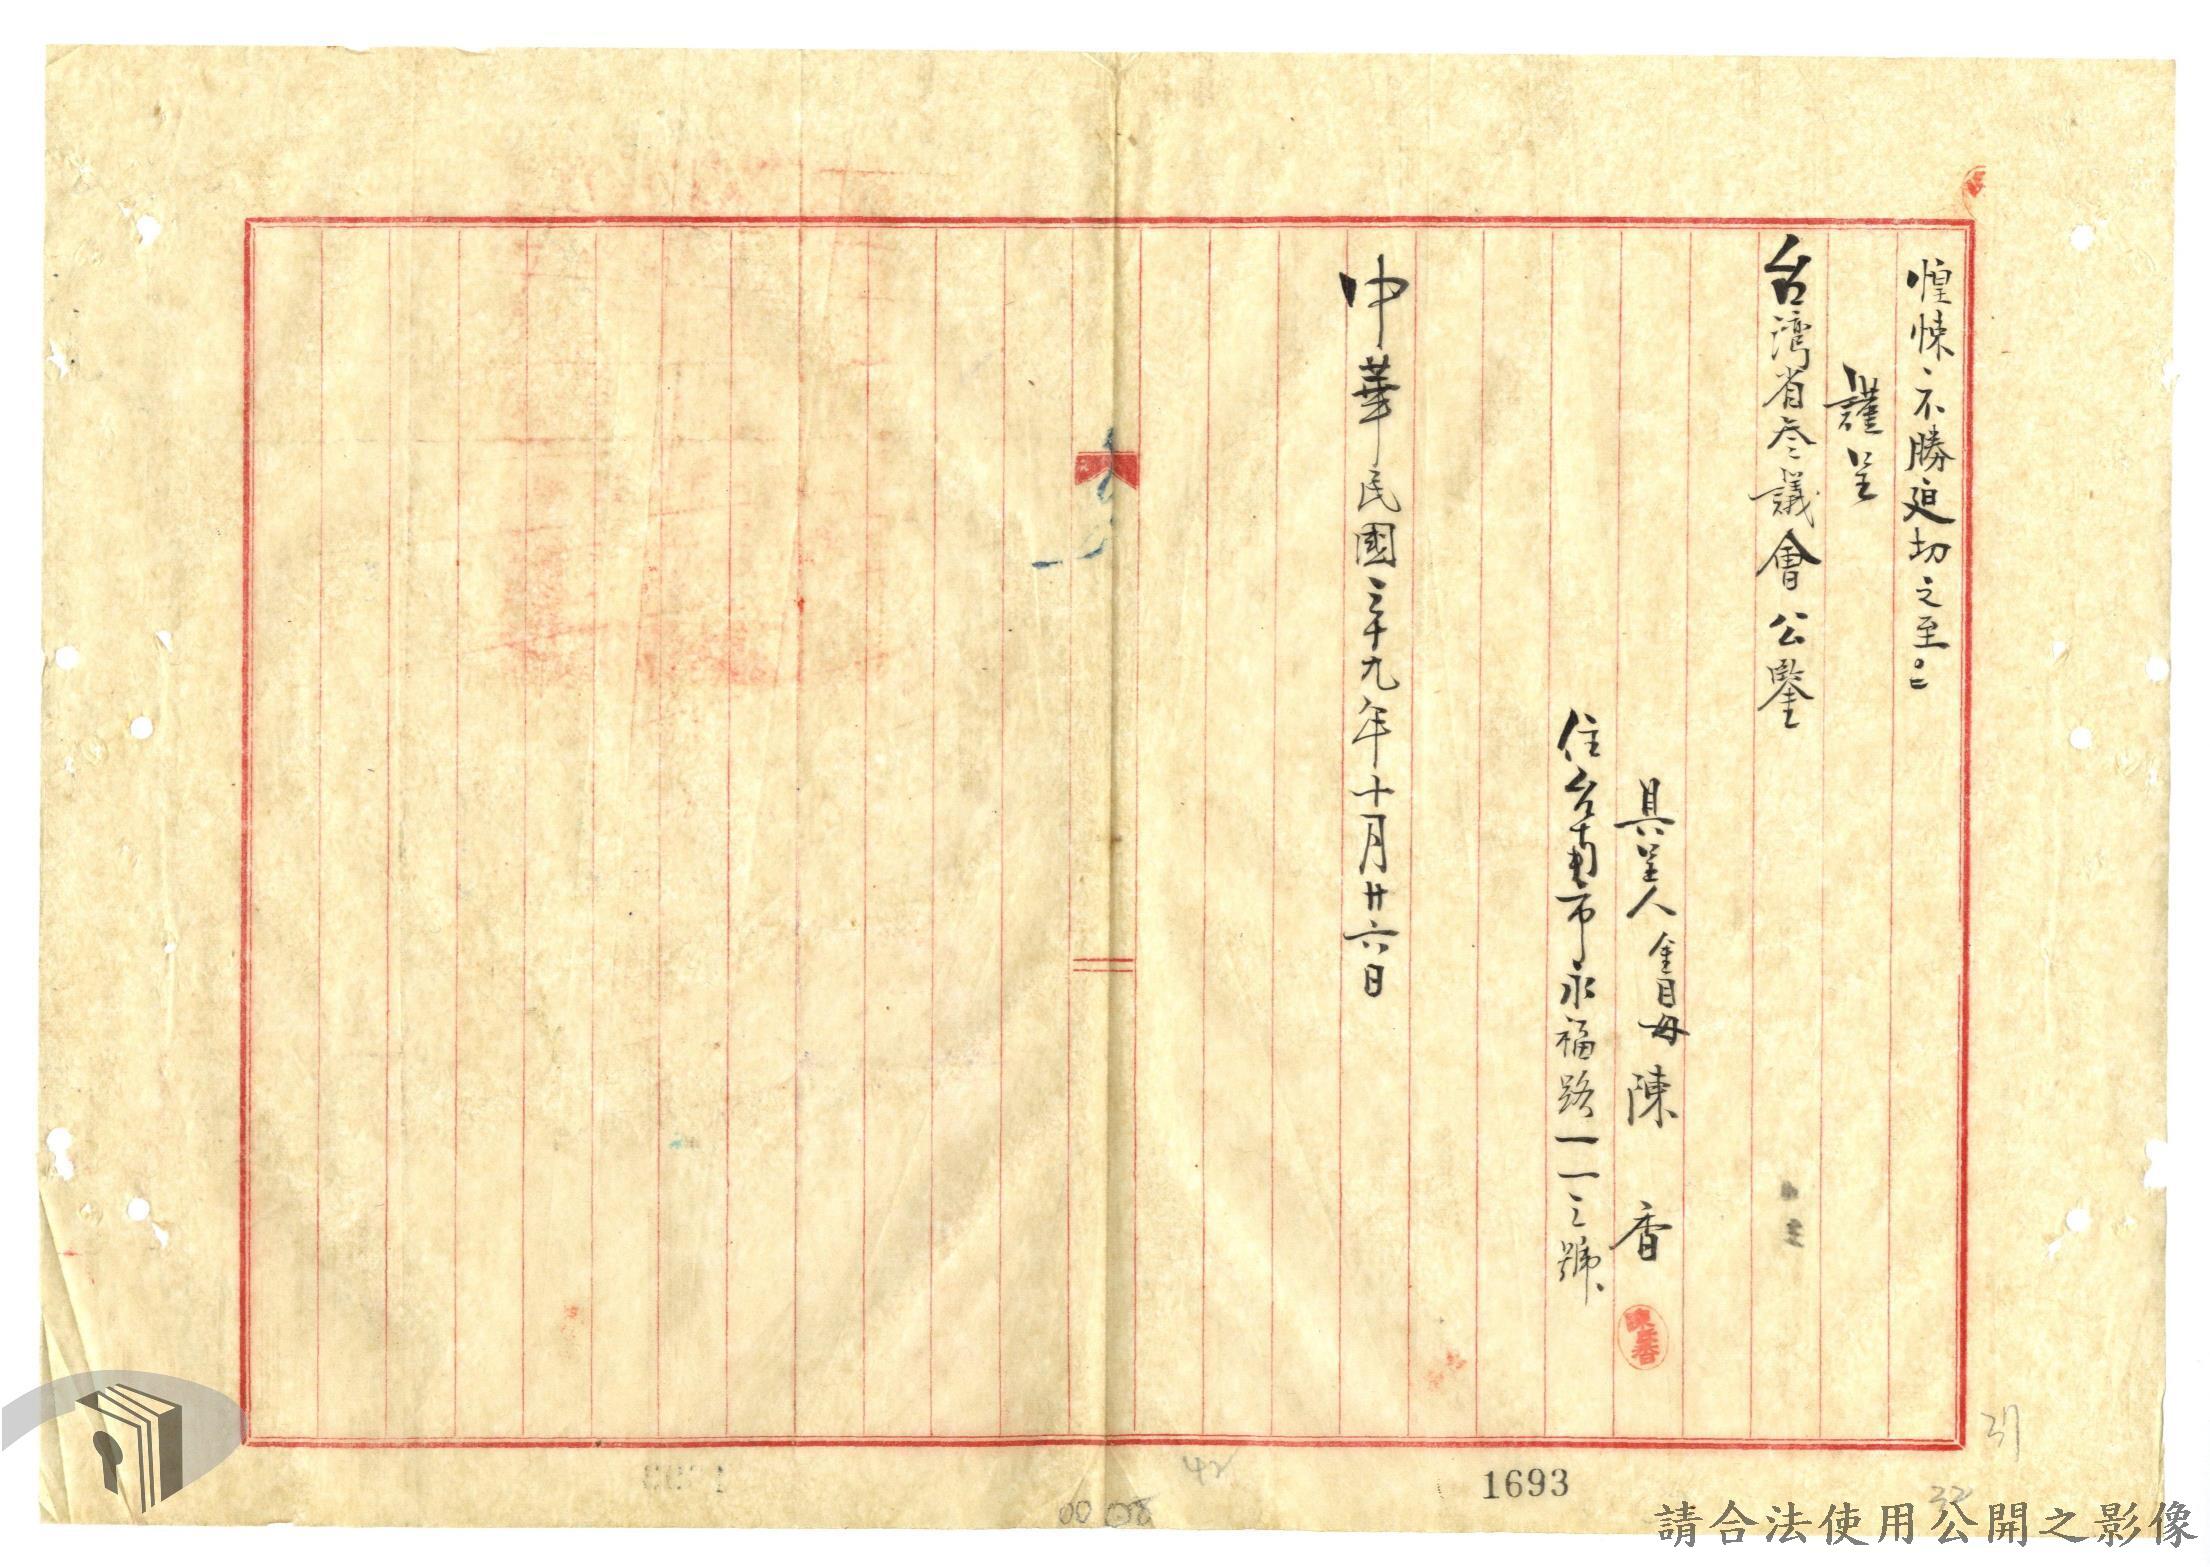 惶悚不勝迫切之至。
謹呈
台湾省参議會公鑒
具呈人會員母陳 香
住台南市永福路一一三號、
中華民國三十九年十月廿六日
1693
42
00 08
31
32
請合法使用公開之影像